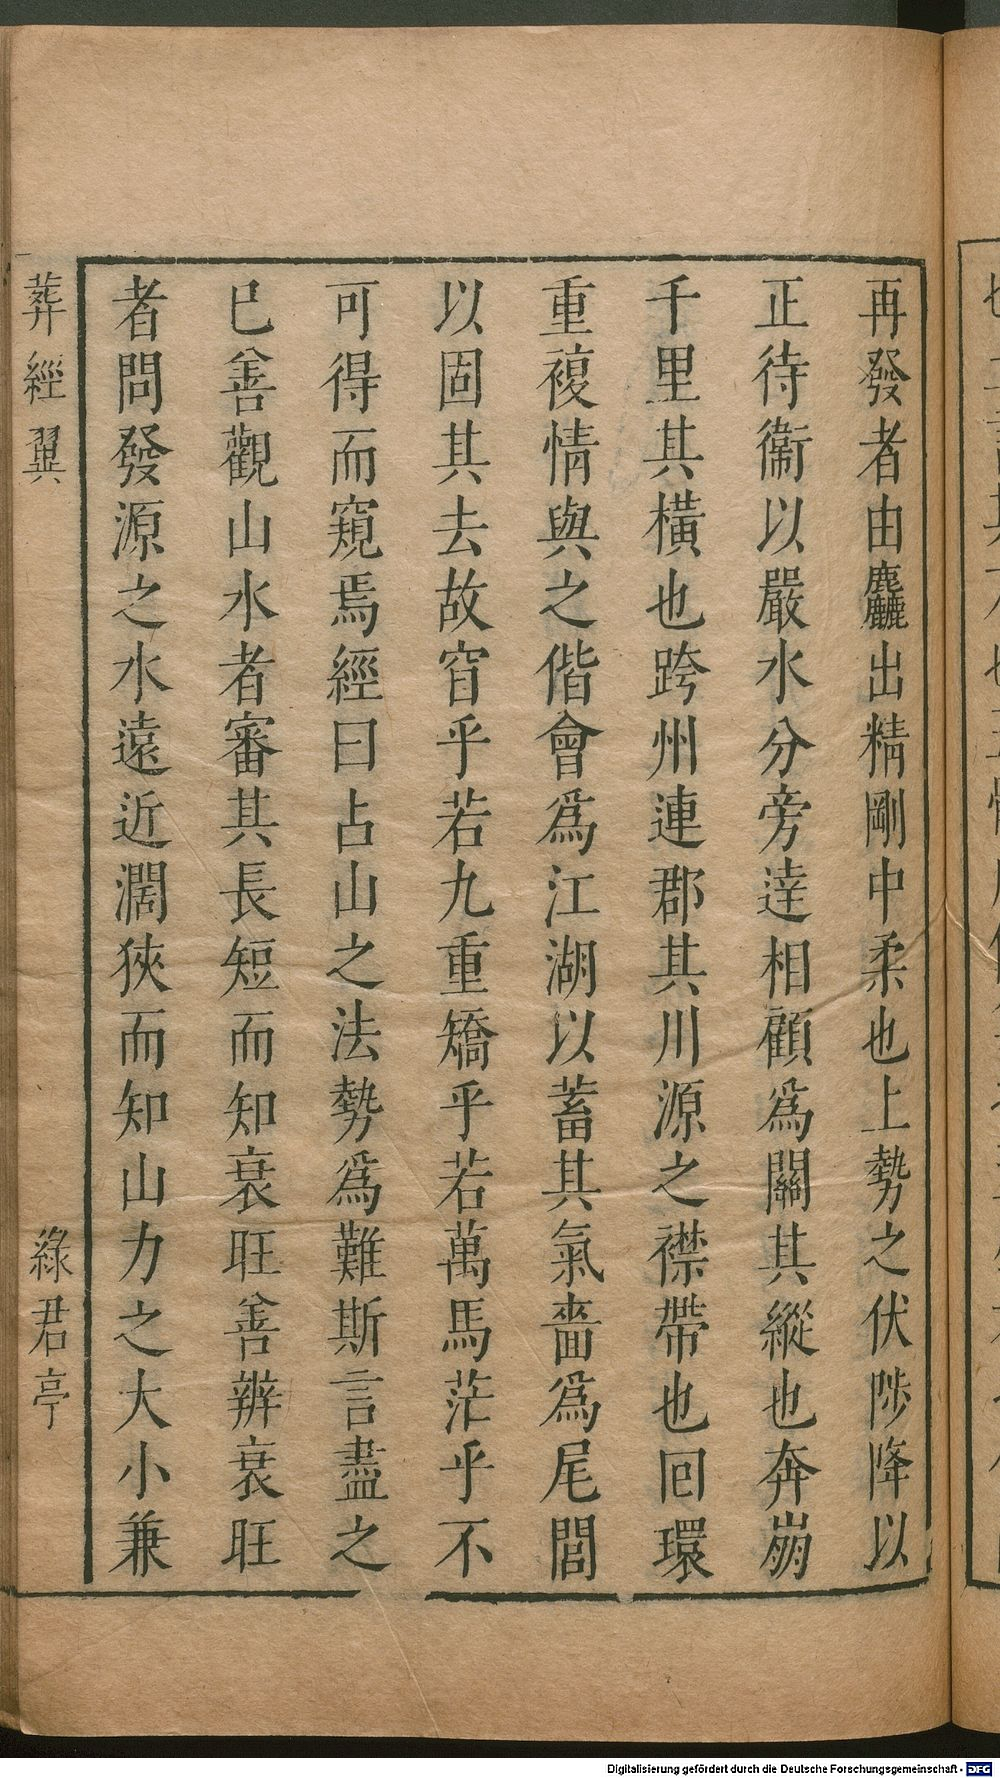 再發者由麤出精剛中柔也上勢之伏陟降以
正待衞以嚴水分旁達相顧爲關其縱也奔崩
千里其橫也跨州連郡其川源之襟帶也囘環
重複情與之偕會爲江湖以蓄其氣嗇爲尾閭
以固其去故窅乎若九重矯乎若萬馬茫乎不
可得而窺焉經曰占山之法勢爲難斯言盡之
已善觀山水者審其長短而知衰旺善辨衰旺
者問發源之水遠近濶狹而知山力之大小兼
葬經翼
綠君亭
Digitalisierung gefördert durch die Deutsche Forschungsgemeinschaft - DFG